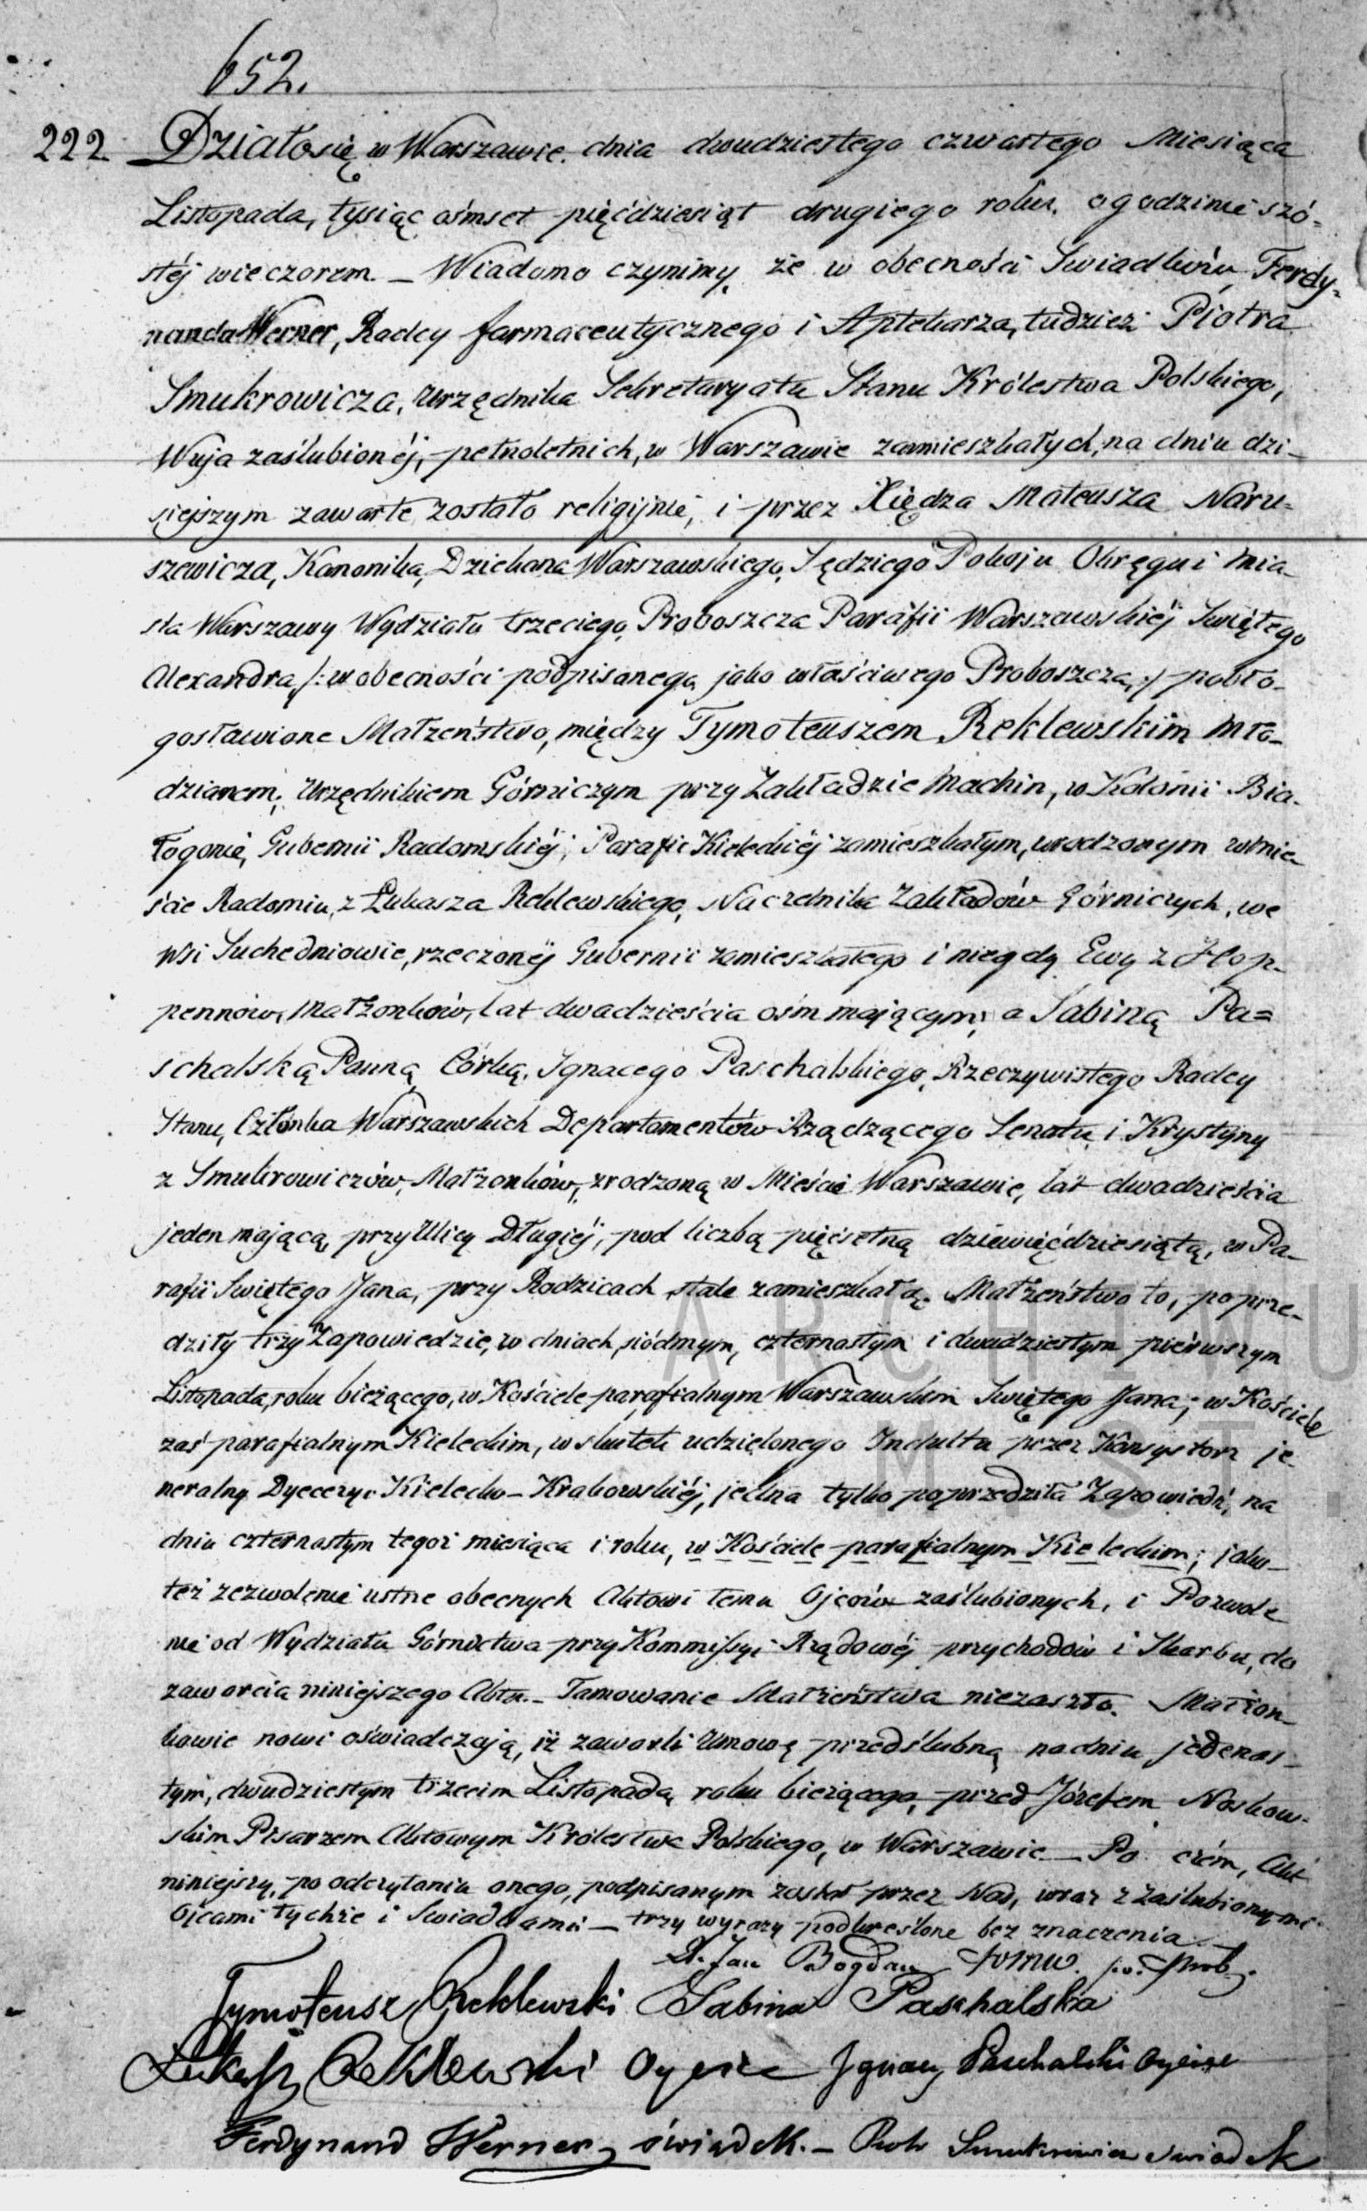 652.
222 Działosię w Warszawie dnia dwudziestego czwartego Miesiąca
Listopada, tysiąc ośmset pięćdziesiąt drugiego roku, o godzinie szó-
stéj wieczorem. – Wiadomo czynimy, że w obecności Swiadków Ferdy-
nanda Werner, Radcy farmaceutycznego i Aptekarza, tudzież Piotra
Smukrowicza, Urzędnika Sekretaryatu Stanu Królestwa Polskiego,
Wuja zaślubionéj, pełnoletnich, w Warszawie zamieszkałych, na dniu dzi-
siejszym zawarte zostało religijnie, i przez Xiędza Mateusza Naru-
szewicza, Kanonika, Dziekana Warszawskiego, Sędziego Pokoju Okręgu i Mia-
sta Warszawy Wydziału trzeciego, Proboszcza Parafii Warszawskiéj Swiętego
Alexandra, /: w obecności podpisanego, jako właściwego Proboszcza, :/ pobło-
gosławione Małżeństwo, między Tymoteuszem Reklewskim Mło-
dzianem, Urzędnikiem Górniczym przy Zakładzie Machin, w Kolonii Bia-
łogonie, Gubernii Radomskiéj, Parafii Kieleckiéj zamieszkałym, urodzonym w Mie-
ście Radomiu, z Łukasza Reklewskiego, Naczelnika Zakładów Górniczych, we
Wsi Suchedniowie, rzeczonéj Gubernii zamieszkałego i niegdy Ewy z Hop-
pennów, Małżonków, lat dwadzieścia ośm mającym; a Sabiną Pa=
schalską Panną, Córką, Ignacego Paschalskiego, Rzeczywistego Radcy
Stanu, Członka Warszawskich Departamentów Rządzącego Senatu, i Krystyny
z Smukrowiczów, Małżonków, urodzoną w Mieście Warszawie, lat dwadzieścia
jeden mającą, przy Ulicy Długiéj, pod liczbą pięćsetną dziewięćdziesiątą, w Pa-
rafii Swiętego Jana, przy Rodzicach stale zamieszkałą. Małżeństwo to, poprze-
dziły trzy Zapowiedzie, w dniach, siódmym, czternastym i dwudziestym pierwszym
Listopada, roku bieżącego, w Kościele parafialnym Warszawskim Swiętego Jana; w Kościele
zaś parafialnym Kieleckim, w skutek udzielonego Indultu przez Konsystorz je-
neralny Dyecezyi Kielecko-Krakowskiéj, jedna tylko poprzedziła Zapowiedź, na
dniu czternastym tegoż miesiąca i roku, w Kościele parafialnym Kieleckim; jako-
też zezwolenie ustne obecnych Aktowi temu Ojców zaślubionych, i Pozwole
nie od Wydziału Górnictwa przy Kommissyi Rządowéj przychodów i Skarbu, do
zawarcia niniejszego Aktu. – Tamowanie Małżeństwa niezaszło. Małżon-
kowie nowi oświadczają, iż zawarli Umowę przedślubną na dniu jedenas-
tym, dwudziestym trzecim Listopada, roku bieżącego, przed Józefem Noskow-
skim Pisarzem Aktowym Królestwa Polskiego, w Warszawie. – Po czém, Akt
niniejszy, po odczytaniu onego, podpisanym został przez Nas, wraz z Zaślubionymi
Ojcami tychże i Swiadkami – trzy wyrazy podkreślone bez znaczenia –
X. Jan Bogdan
Tymoteusz Reklewski Sabina Paschalska
Łukasz Reklewski Oyciec Ignacy Paschalski Oyciec
Ferdynand Werner, świadek. – Piotr Smukrowicz świadek
ARCHIWU
M. ST.